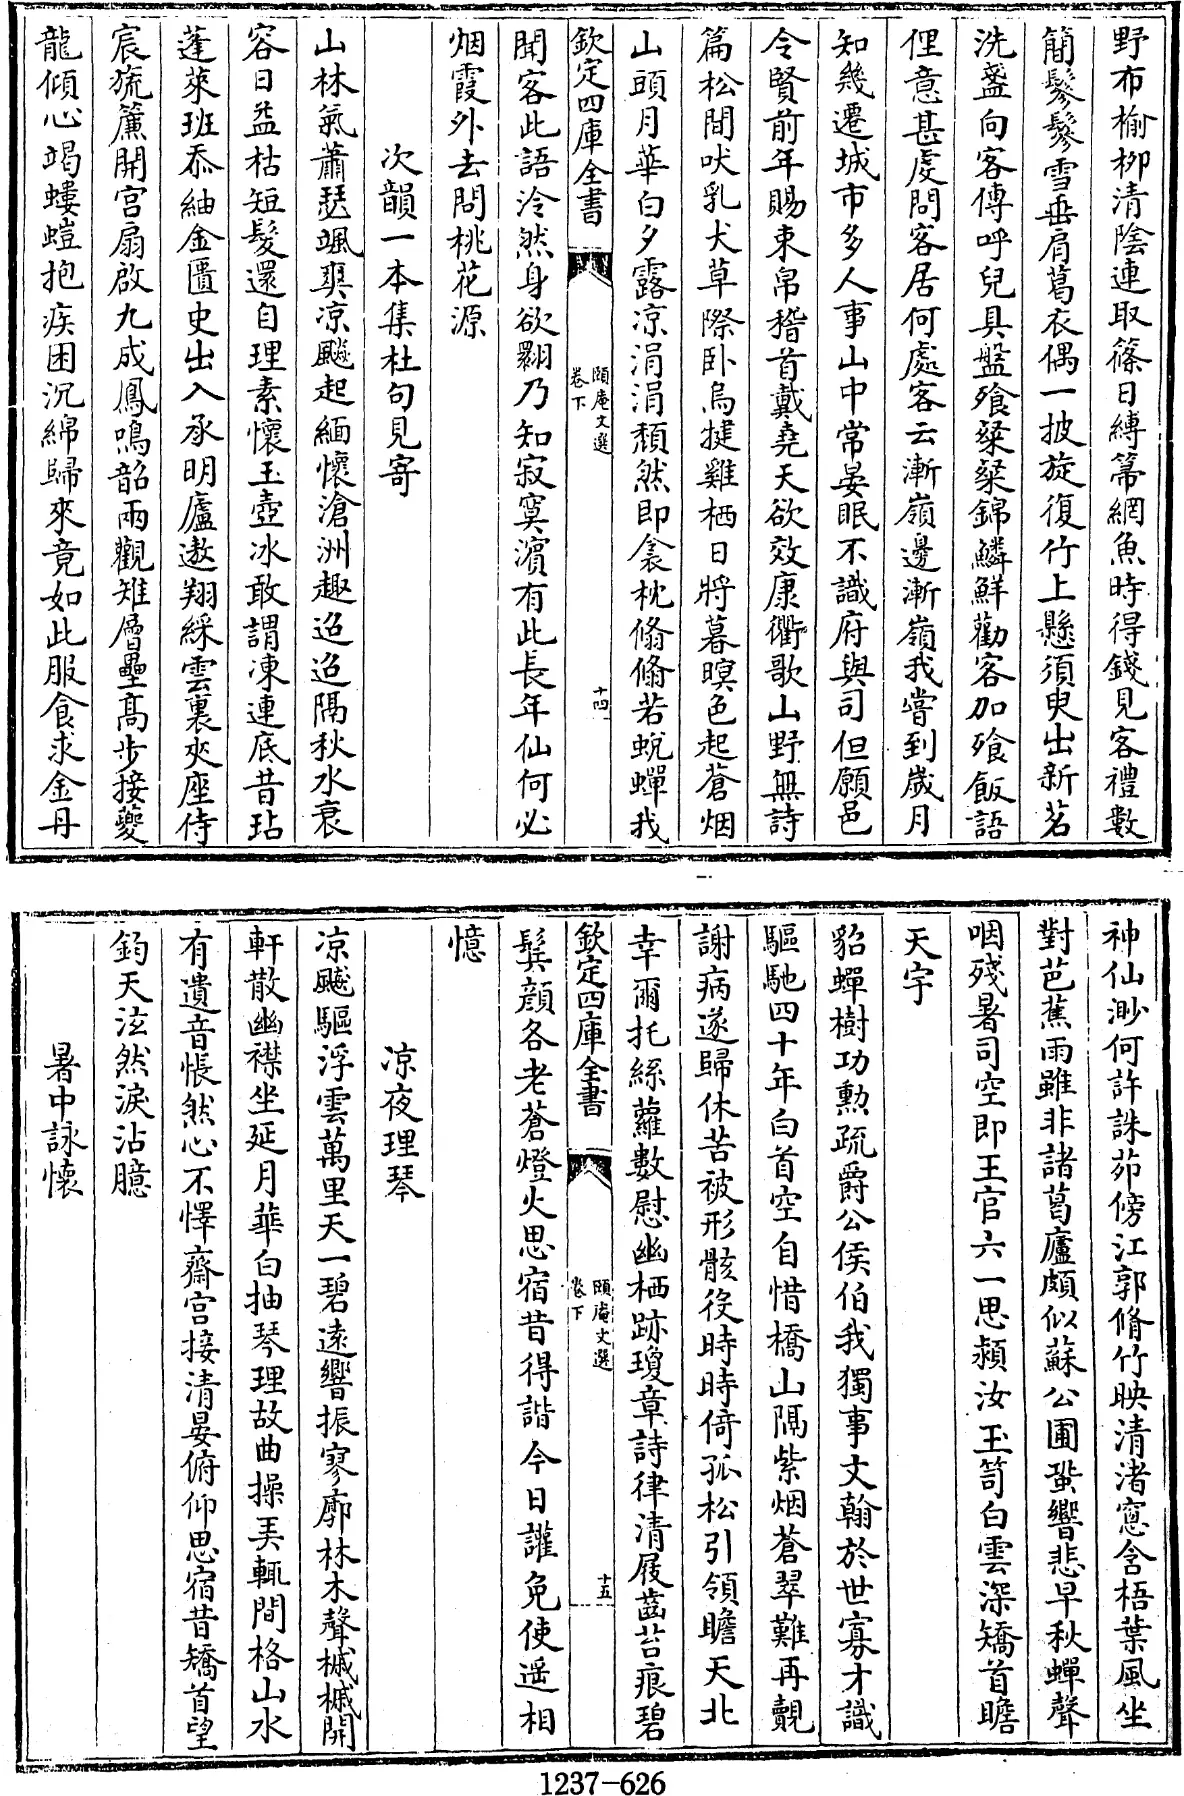 野布榆柳清陰連取篠日縛箒網魚時得錢見客禮數
簡鬖鬖雪垂肩葛衣偶一披旋復竹上懸須臾出新茗
洗盞向客傳呼兒具盤飱粲粲錦鱗鮮勸客加飱飯語
俚意甚虔問客居何處客云漸嶺邊漸嶺我嘗到歲月
知幾遷城市多人事山中常晏眠不識府與司但願邑
令賢前年賜束帛稽首戴堯天欲效康衢歌山野無詩
篇松間吠乳犬草際卧烏犍雞栖日將暮暝色起蒼烟
山頭月華白夕露凉涓涓頹然即衾枕翛翛若蛻蟬我
欽定四庫全書
頤庵文選
卷下
十四
聞客此語泠然身欲翾乃知寂寞濵有此長年仙何必
烟霞外去問桃花源
次韻一本集杜句見寄
山林氣蕭瑟颯爽凉飈起緬懷滄洲趣迢迢隔秋水衰
容日益枯短髮還自理素懷玉壺冰敢謂凍連底昔玷
蓬萊班忝紬金匱史出入承明廬遨翔綵雲裏夾座侍
宸旒簾開宫扇啟九成鳳鳴韶兩觀雉層壘髙步接夔
龍傾心竭螻螘抱疾困沉綿歸來竟如此服食求金丹
神仙渺何許誅茆傍江郭脩竹映清渚窻含梧葉風坐
對芭蕉雨雖非諸葛廬頗似蘇公圃蛩響悲早秋蟬聲
咽殘暑司空即王官六一思潁汝玉笥白雲深矯首瞻
天宇
貂蟬樹功勲疏爵公侯伯我獨事文翰於世寡才識
驅馳四十年白首空自惜橋山隔紫烟蒼翠難再覿
謝病遂歸休苦被形骸役時時倚孤松引領瞻天北
幸爾托絲蘿數慰幽栖跡瓊章詩律清屐齒苔痕碧
欽定四庫全書
頤庵文選
卷下
十五
鬂顔各老蒼燈火思宿昔得諧今日讙免使遥相
憶
凉夜理琴
凉飈驅浮雲萬里天一碧遠響振寥廓林木聲槭槭開
軒散幽襟坐延月華白抽琴理故曲操弄輒間格山水
有遺音悵然心不懌齋宫接清晏俯仰思宿昔矯首望
鈞天泫然淚沾臆
暑中詠懷
1237-626